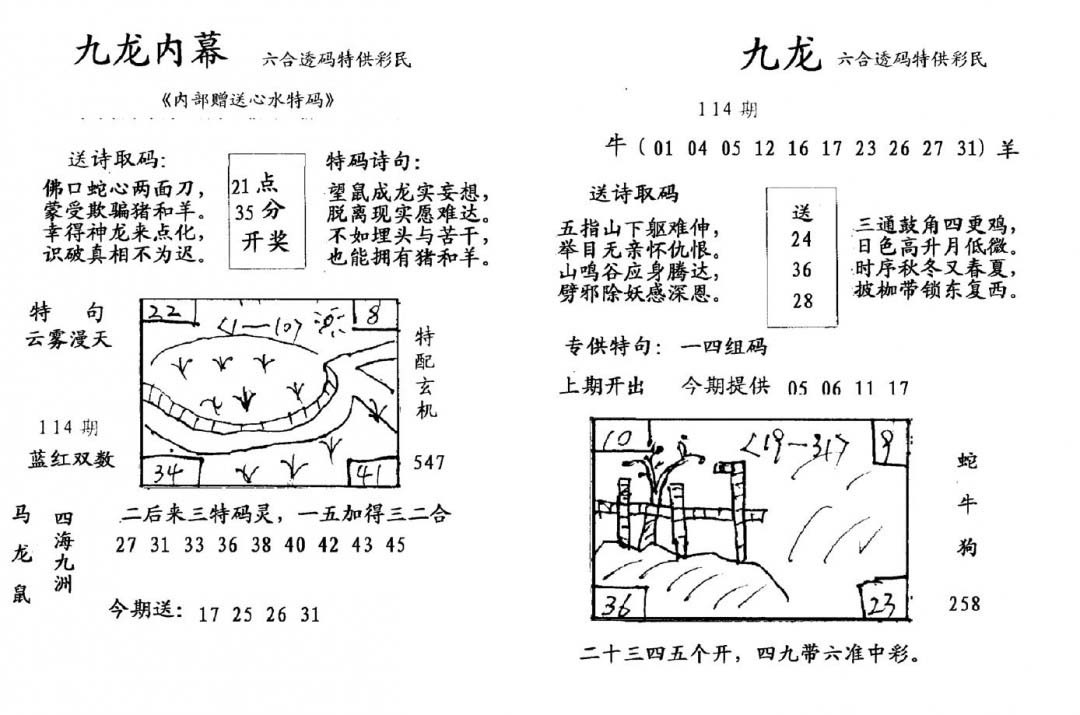 九龙内幕 六合透码特供彩民
《内部赠送心水特码》
送诗取码：
佛口蛇心两面刀，
蒙受欺骗猪和羊。
幸得神龙来点化，
识破真相不为迟。
21点
35分
开奖
特码诗句：
望鼠成龙实妄想，
脱离现实愿难达。
不如埋头与苦干，
也能拥有猪和羊。
特 句
云雾漫天
114期
蓝红双数
22
8
34
41
特配玄机
547
马龙鼠
四海九洲
二后来三特码灵，一五加得三二合
27 31 33 36 38 40 42 43 45
今期送：17 25 26 31
九龙 六合透码特供彩民
114期
牛（01 04 05 12 16 17 23 26 27 31）羊
送诗取码
五指山下躯难伸，
举目无亲怀仇恨。
山鸣谷应身腾达，
劈邪除妖感深恩。
送
24
36
28
三通鼓角四更鸡，
日色高升月低微。
时序秋冬又春夏，
披枷带锁东复西。
专供特句：一四组码
上期开出 今期提供 05 06 11 17
10
<19—31>
9
36
23
蛇
牛
狗
258
二十三四五个开，四九带六准中彩。